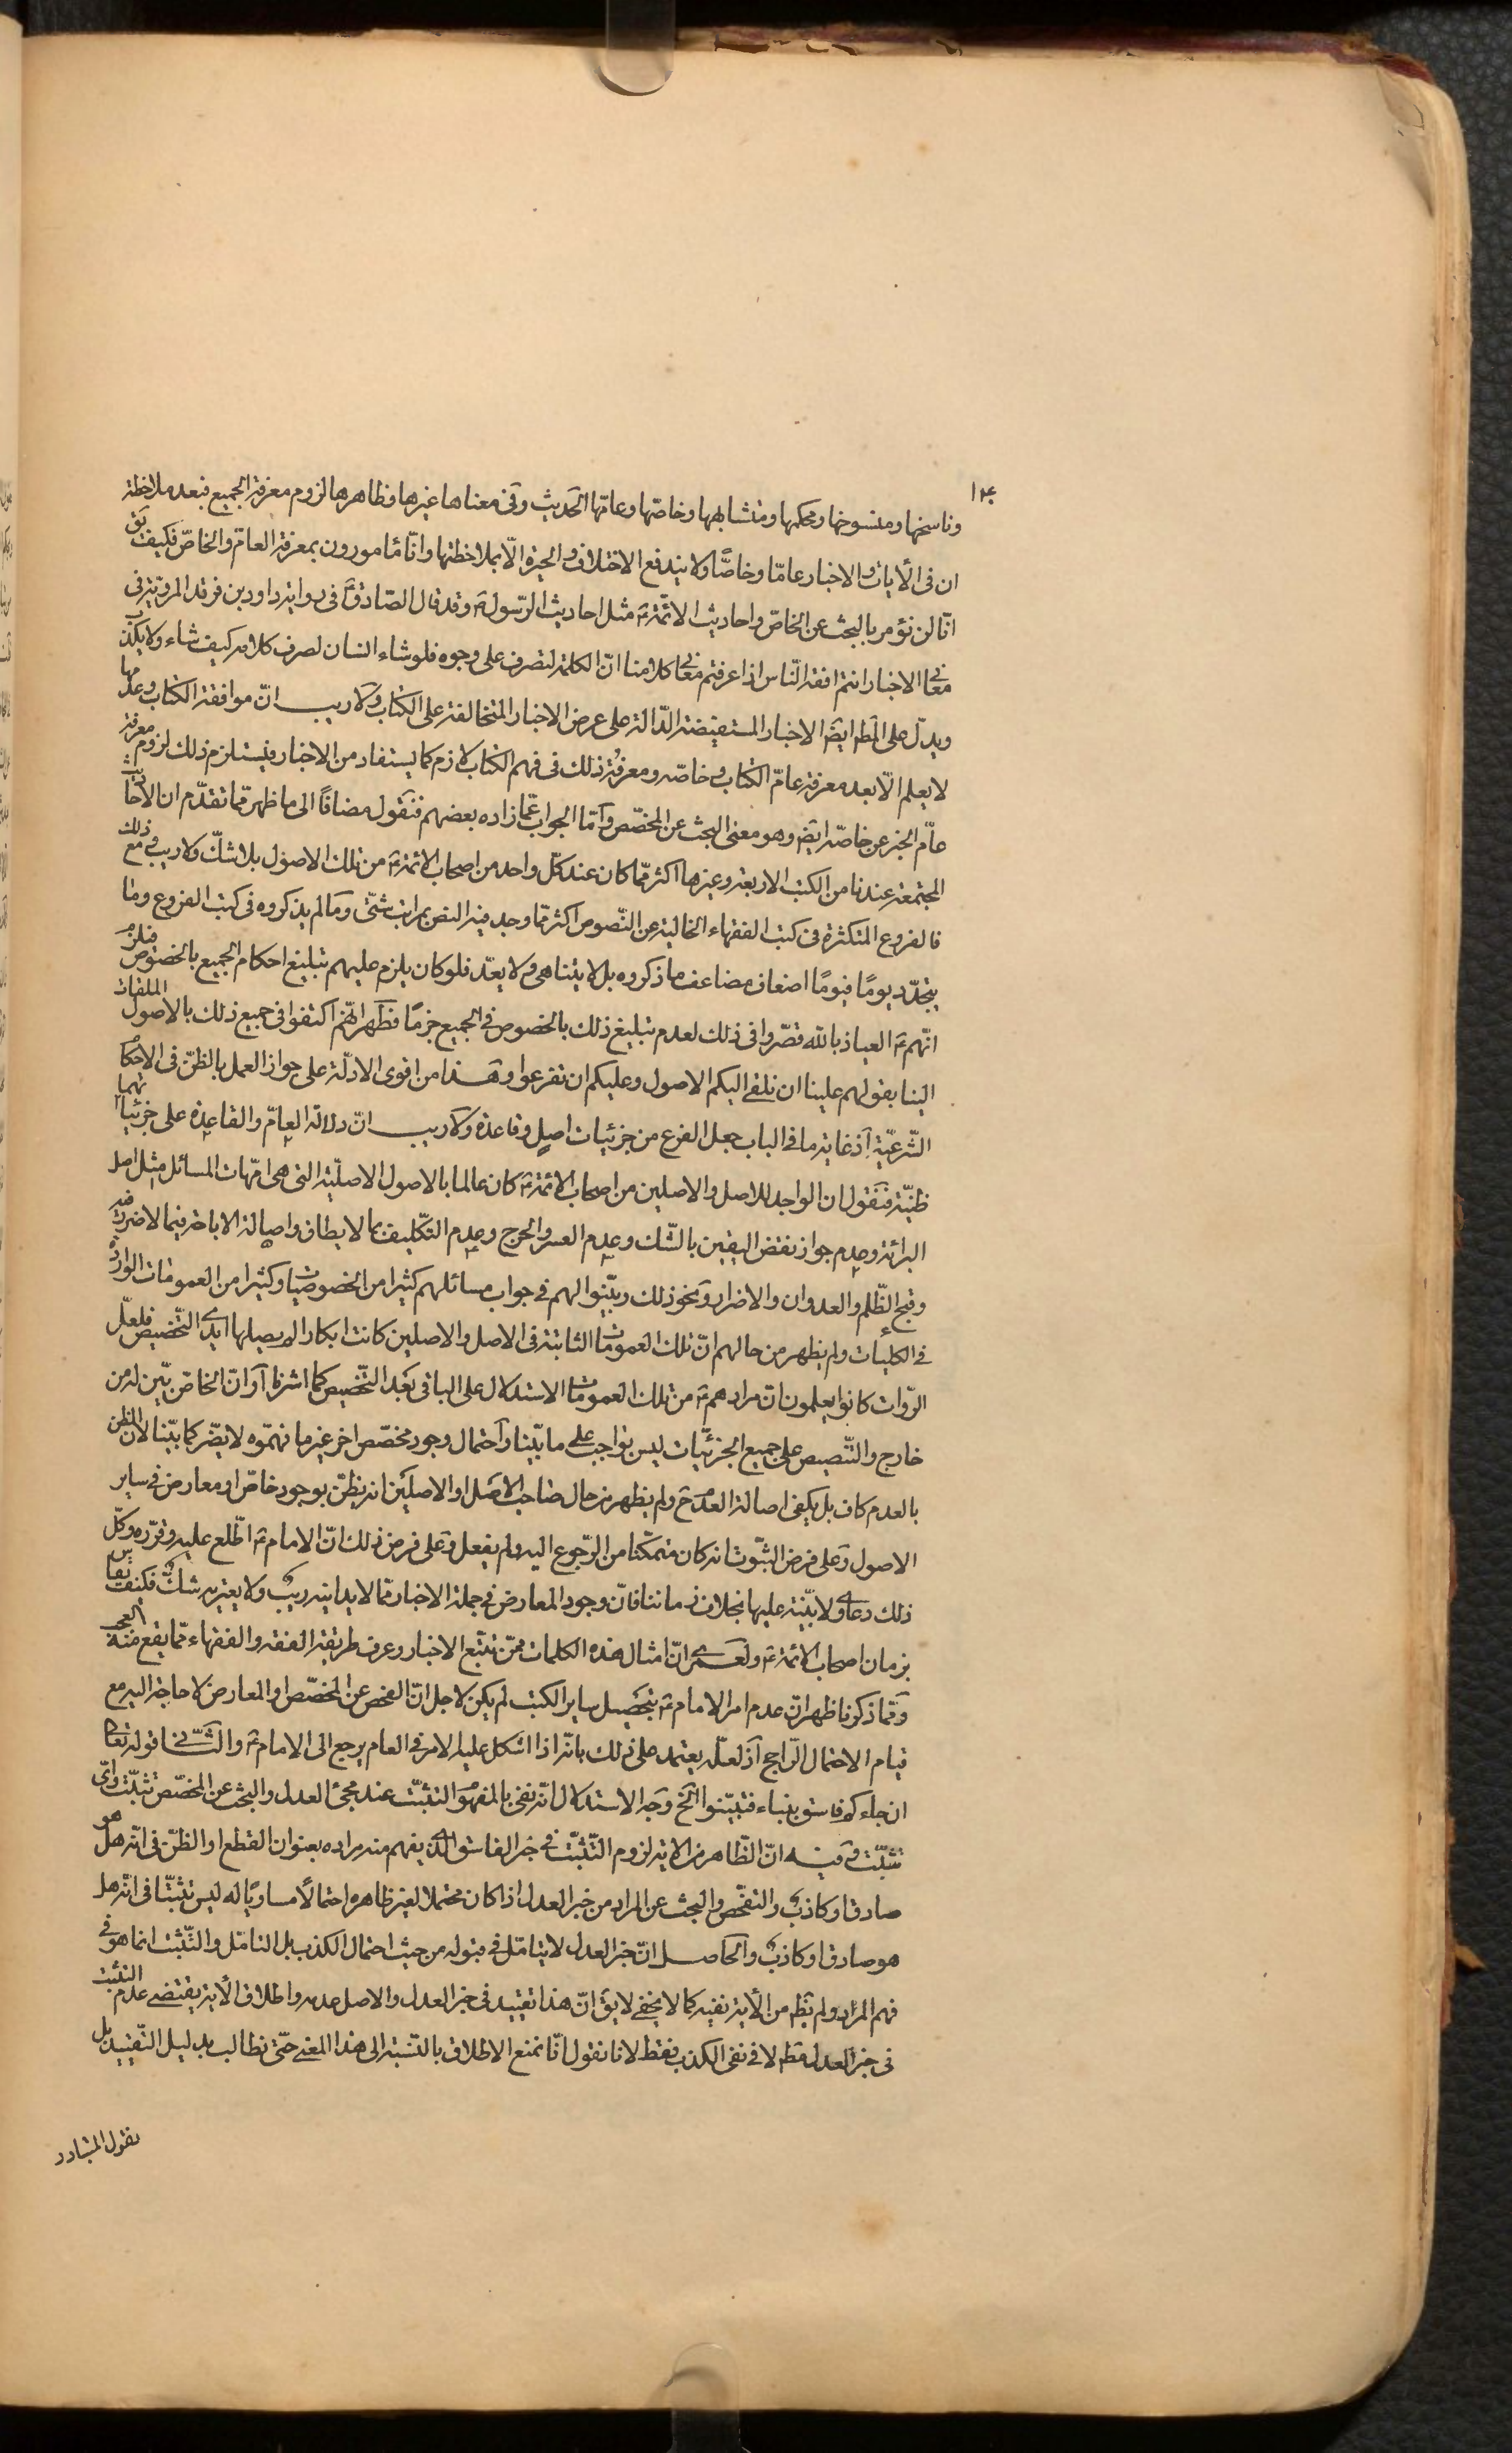 ۱۴
وناسخها ومنسوخها ومحكمها ومتشابهها وخاصّها وعامّها الحديث وفى معناها غيرها وظاهرها لزوم معرفة الجميع فبعد ملاحظة
ان فى الآيات والاخبار عامّا وخاصّا ولا يندفع الاختلاف والحيرة الّا بملاحظتها وانّا مامورون بمعرفة العامّ والخاصّ فكيف يق
انّا لن نؤمر بالبحث عن الخاصّ واحاديث الائمّة ع مثل احاديث الرّسول ص وقد قال الصّادق ع فى رواية داود بن فرقد المرويّة فى
معانى الاخبار انتم افقه النّاس اذا عرفتم معانى كلامنا انّ الكلمة لتصرف على وجوه فلو شاء انسان لصرف كلامه كيف شاء ولا يكذب
ويدلّ على المط ايض الاخبار المستفيضة الدّالة على عرض الاخبار المتخالفة على الكتاب ولا ريب انّ موافقة الكتاب وعدمها
لا يعلم الّا بعد معرفة عامّ الكتاب وخاصّه ومعرفة ذلك فى فهم الكتاب لازم كما يستفاد من الاخبار فيستلزم ذلك لزوم معرفة
عامّ الخبر عن خاصّه ايض وهو معنى البحث عن المخصّص وامّا الجواب عمّا زاده بعضهم فنقول مضافًا الى ما ظهر ممّا تقدّم ان الاحاديث
المجتمعة عندنا من الكتب الاربعة وغيرها اكثر ممّا كان عند كلّ واحد من اصحاب الائمة ع من تلك الاصول بلا شكّ ولا ريب ومع ذلك
فالفروع المتكثرة فى كتب الفقهاء الخالية عن النّصوص اكثر ممّا وجد فيه النص بمراتب شتّى وما لم يذكروه فى كتب الفروع ومّا
يتجدّد يومًا فيومًا اضعاف مضاعف ما ذكروه بل لا يتناهى ولا يعدّ فلو كان يلزم عليهم تبليغ احكام الجميع بالخصوص فيلزم
انّهم ع العياذ بالله قصّروا فى ذلك لعدم تبليغ ذلك بالخصوص فى الجميع جزمًا فظهر انّهم اكتفوا فى جميع ذلك بالاصول الملقاة
الينا بقولهم علينا ان نلقى اليكم الاصول وعليكم ان تفرعوا وهذا من اقوى الادلّة على جواز العمل بالظنّ فى الاحكام
الشّرعيّة اذ غاية ما فى الباب جعل الفرع من جزئيات اصل وقاعدة ولا ريب انّ دلالة العامّ والقاعدة على جزئياتهما
ظنيّة فنقول ان الواجد للاصل والاصلين من اصحاب الائمة ع كان عالما بالاصول الاصليّة التى هى امّهات المسائل مثل اصل
البرائة وعدم جواز نقض اليقين بالشّك وعدم العسر والحرج وعدم التكليف بما لا يطاق واصالة الاباحة فيما لا ضرر فيه
وقبح الظّلم والعدوان والاضرار ونحو ذلك وبيّنوا لهم فى جواب مسائلهم كثيرا من الخصوصيات وكثيرا من العمومات الواردة
فى الكليات ولم يظهر من حالهم انّ تلك العمومات الثابتة فى الاصل والاصلين كانت ابكارا لم يصلها ايدى التّخصيص فلعلّ
الرّوات كانوا يعلمون انّ مرادهم ع من تلك العمومات الاستدلال على الباقى بعد التّخصيص كما اشرنا او انّ الخاصّ بيّن له من
خارج والتّنصيص على جميع الجزئيّات ليس بواجب على ما بيّنا واحتمال وجود مخصّص اخر غير ما فهّموه لا يضّر كما بيّنا لانّ الظن
بالعدم كاف بل يكفى اصالة العدم ح ولم يظهر من حال صاحب الاصل او الاصلين انه يظنّ بوجود خاصّ او معارض فى ساير
الاصول وعلى فرض الثبّوت انه كان متمكّنا من الرّجوع اليه ولم يفعل وعلى فرض ذلك انّ الامام ع اطّلع عليه وقرّره وكلّ
ذلك دعاوى لا بيّنة عليها بخلاف زماننا فانّ وجود المعارض فى جملة الاخبار ممّا لا يدانيه ريب ولا يعتريه شكّ فكيف يقاس
بزمان اصحاب الائمة ع ولعمرى انّ امثال هذه الكلمات ممّن تتبّع الاخبار وعرف طريقة الفقه والفقهاء ممّا يقع منه العجب
وممّا ذكرنا ظهر انّ عدم امر الامام ع بتحصيل ساير الكتب لم يكن لاجل انّ الفحص عن المخصّص او المعارض لا حاجة اليه مع
قيام الاحتمال الرّاجح اذ لعلّه يعتمد على ذلك بانّه اذا اشكل عليه الامر فى العام يرجع الى الامام ع والثّانى قوله تعالى
ان جاءكم فاسق بنباء فتبيّنوا الخ وجه الاستدلال انّه نفى بالمفهوم التثبّت عند مجئ العدل والبحث عن المخصّص تثبّت واىّ
تثبّت وفيه انّ الظّاهر من الاية لزوم التّثبّت فى خبر الفاسق الّذى يفهم منه مراده بعنوان القطع او الظنّ فى انّه هل هو
صادق او كاذب والتفحّص والبحث عن المراد من خبر العدل اذا كان محتملا لغير ظاهره احتمالًا مساويًا له ليس تثبّتا فى انّه هل
هو صادق او كاذب والحاصل انّ خبر العدل لا يتامّل فى قبوله من حيث احتمال الكذب بل التامّل والتّثبت انما هو فى
فهم المراد ولم يظهر من الآية نفيه كما لا يخفى لا يق انّ هذا تقييد فى خبر العدل والاصل عدمه واطلاق الآية يقتضى عدم التثبّت
فى خبر العدل مط لا فى نفى الكذب فقط لانا نقول انّا نمنع الاطلاق بالنّسبة الى هذا المعنى حتّى نطالب بدليل التّقييد بل
نقول المتبادر